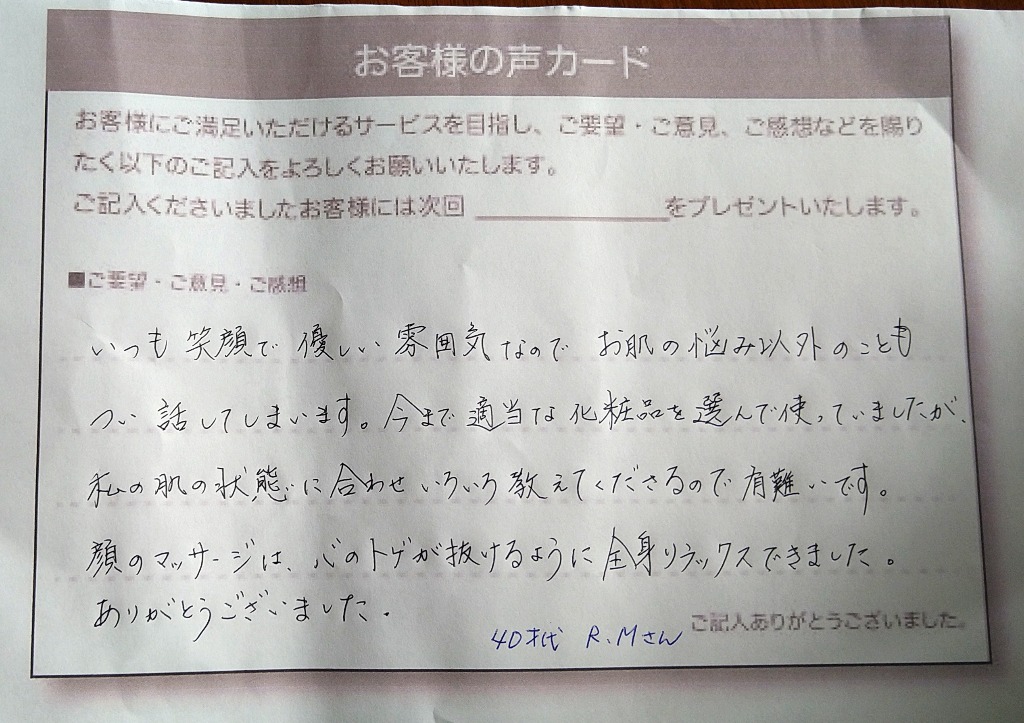 お客様の声カード
お客様にご満足いただけるサービスを目指し、ご要望・ご意見、ご感想などを賜り
たく以下のご記入をよろしくお願いいたします。
ご記入くださいましたお客様には次回＿＿＿＿＿＿＿をプレゼントいたします。
■ご要望・ご意見・ご感想
いつも笑顔で優しい雰囲気なので お肌の悩み以外のことも
つい話してしまいます。今まで適当な化粧品を選んで使っていましたが、
私の肌の状態に合わせいろいろ教えてくださるので有難いです。
顔のマッサージは、心のトゲが抜けるように全身リラックスできました。
ありがとうございました。
40才代 R.Mさん
ご記入ありがとうございました。